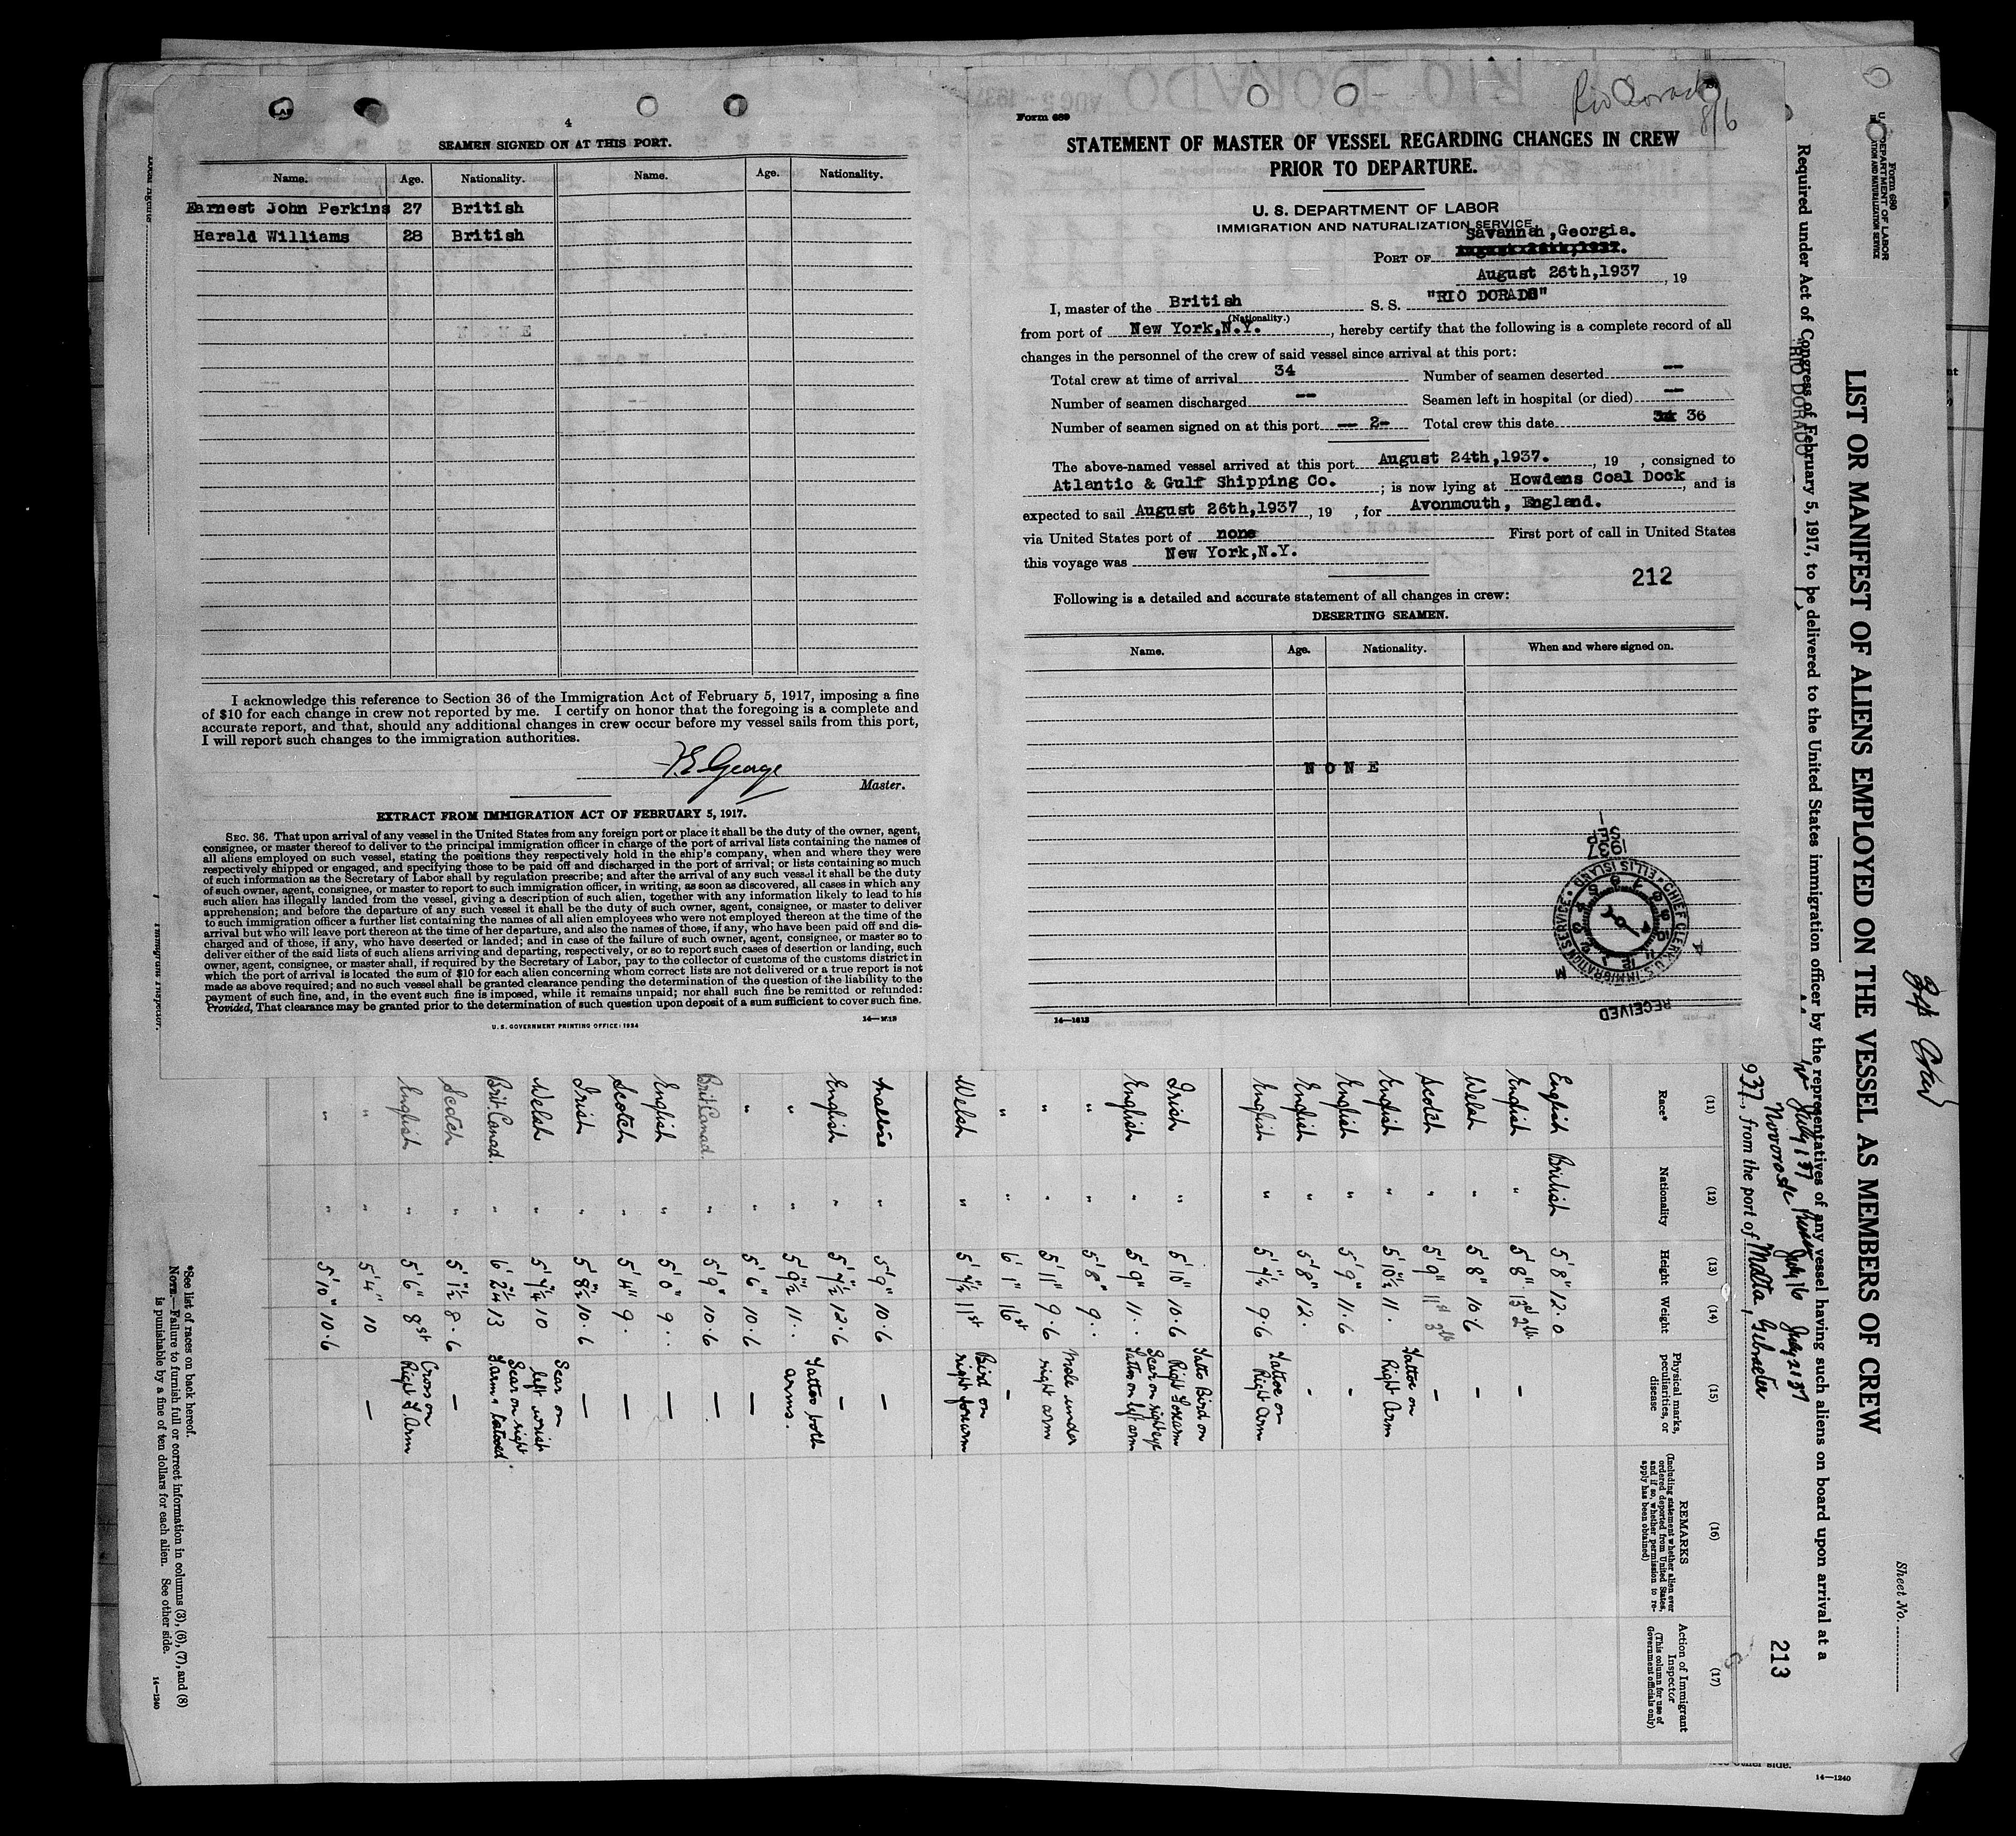 4
SEAMEN SIGNED ON AT THIS PORT.
Name. Age. Nationality. Name. Age. Nationality.
Earnest John Perkins 27 British
Harald Williams 28 British
I acknowledge this reference to Section 36 of the Immigration Act of February 5, 1917, imposing a fine
of $10 for each change in crew not reported by me. I certify on honor that the foregoing is a complete and
accurate report, and that, should any additional changes in crew occur before my vessel sails from this port,
I will report such changes to the immigration authorities.
George
Master.
EXTRACT FROM IMMIGRATION ACT OF FEBRUARY 5, 1917.
SEC. 36. That upon arrival of any vessel in the United States from any foreign port or place it shall be the duty of the owner, agent,
consignee, or master thereof to deliver to the principal immigration officer in charge of the port of arrival lists containing the names of
all aliens employed on such vessel, stating the positions they respectively hold in the ship's company, when and where they were
respectively shipped or engaged, and specifying those to be paid off and discharged in the port of arrival; or lists containing so much
of such information as the Secretary of Labor shall by regulation prescribe; and after the arrival of any such vessel it shall be the duty
of such owner, agent, consignee, or master to report to such immigration officer, in writing, as soon as discovered, all cases in which any
such alien has illegally landed from the vessel, giving a description of such alien, together with any information likely to lead to his
apprehension; and before the departure of any such vessel it shall be the duty of such owner, agent, consignee, or master to deliver
to such immigration officer a further list containing the names of all alien employees who were not employed thereon at the time of the
arrival but who will leave port thereon at the time of her departure, and also the names of those, if any, who have been paid off and dis-
charged and of those, if any, who have deserted or landed; and in case of the failure of such owner, agent, consignee, or master so to
deliver either of the said lists of such aliens arriving and departing, respectively, or so to report such cases of desertion or landing, such
owner, agent, consignee, or master shall, if required by the Secretary of Labor, pay to the collector of customs of the customs district in
which the port of arrival is located the sum of $10 for each alien concerning whom correct lists are not delivered or a true report is not
made as above required; and no such vessel shall be granted clearance pending the determination of the question of the liability to the
payment of such fine, and, in the event such fine is imposed, while it remains unpaid; nor shall such fine be remitted or refunded:
Provided, That clearance may be granted prior to the determination of such question upon deposit of a sum sufficient to cover such fine.
U. S. GOVERNMENT PRINTING OFFICE: 1934
Rio Dorado
8/6
Form 689
STATEMENT OF MASTER OF VESSEL REGARDING CHANGES IN CREW
PRIOR TO DEPARTURE.
U. S. DEPARTMENT OF LABOR
IMMIGRATION AND NATURALIZATION SERVICE
Savannah, Georgia.
PORT OF
August 26th, 1937, 19
I, master of the British S. S. "RIO DORADO"
(Nationality.)
from port of New York, N.Y., hereby certify that the following is a complete record of all
changes in the personnel of the crew of said vessel since arrival at this port:
Total crew at time of arrival 34 Number of seamen deserted --
Number of seamen discharged -- Seamen left in hospital (or died) --
Number of seamen signed on at this port -- 2- Total crew this date 36
The above-named vessel arrived at this port August 24th, 1937., 19 , consigned to
Atlantic & Gulf Shipping Co. ; is now lying at Howdens Coal Dock, and is
expected to sail August 26th, 1937, 19 , for Avonmouth, England.
via United States port of none First port of call in United States
this voyage was New York, N.Y.
212
Following is a detailed and accurate statement of all changes in crew:
DESERTING SEAMEN.
Name. Age. Nationality. When and where signed on.
NONE
RECEIVED
CHIEF CLERK, U.S. IMMIGRATION SERVICE • ELLIS ISLAND
1937
14—1613
Form 680
U. S. DEPARTMENT OF LABOR
IMMIGRATION AND NATURALIZATION SERVICE
Sheet No.
LIST OR MANIFEST OF ALIENS EMPLOYED ON THE VESSEL AS MEMBERS OF CREW
Required under Act of Congress of February 5, 1917, to be delivered to the United States immigration officer by the representatives of any vessel having such aliens on board upon arrival at a
RIO DORADO
July 16 July 21 37
937, from the port of Malta, Gibralter
213
(11) (12) (13) (14) (15) (16) (17)
Race* Nationality Height Weight Physical marks, peculiarities, or disease
REMARKS
(Including statement whether alien ever ordered deported from United States, and if so, whether permission to reapply has been obtained)
Action of Immigrant Inspector
(This column for use of Government officials only)
English British 5' 8" 12.0
English " 5' 8" 13st 2lb -
Welsh " 5' 8" 10.6 -
Scotch " 5' 9" 11st 3lb -
English " 5' 10½" 11. Tattoo on Right Arm
English " 5' 9" 11.6 -
English " 5' 8" 12. -
English " 5' 7½" 9.6 Tattoo on Right Arm
Irish " 5' 10" 10.6 Tatto Bird on Right Forearm
English " 5' 9" 11.. Scar on right eye Tatto on left arm
" " 5' 8" 9..
" " 5' 11" 9.6 Mole under right arm
" " 6' 1" 16st -
Welsh " 5' 7½" 11st Bird on right forearm
Maltese " 5' 9" 10.6 —
English " 5' 7½" 12.6 —
" " 5' 9½" 11.. Tattoo both arms.
" " 5' 6" 10.6 —
Brit. Canad. " 5' 9" 10.6 —
English " 5' 0" 9.. —
Scotch " 5' 4" 9. —
Irish " 5' 8½" 10.6 —
Welsh " 5' 7½" 10 Scar on left wrist
Brit. Canad. " 6' 2¼" 13 Scar on right F. arm & tatooed
Scotch " 5' 1½" 8.6 —
English " 5' 6" 8st Cross on Right F. Arm
" " 5' 4" 10 —
" " 5' 10" 10.6
*See list of races on back hereof.
NOTE.—Failure to furnish full or correct information in columns (3), (6), (7), and (8)
is punishable by a fine of ten dollars for each alien. See other side.
14—1240
14—1240